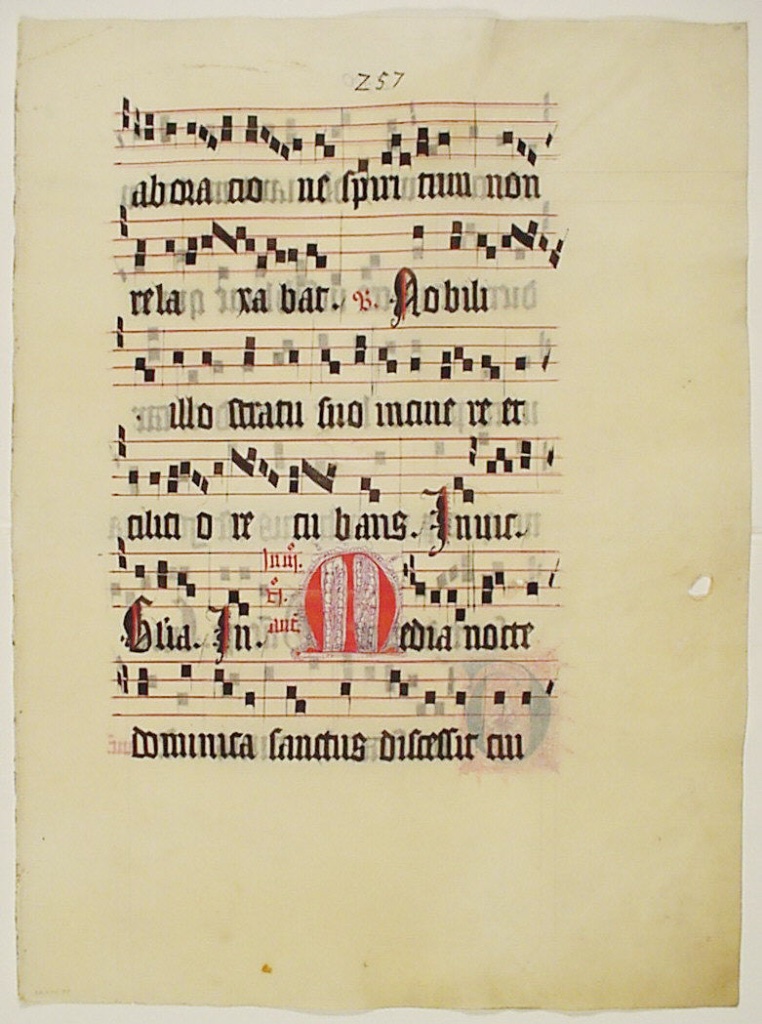 257
ab ora cio ne spiri tum non
rela xa bat. V. Nobili
illo stratu suo in cine re et
cilici o re cu bans. Inuic.
Glia. In. Media nocte
dominica sanctus discessit cui